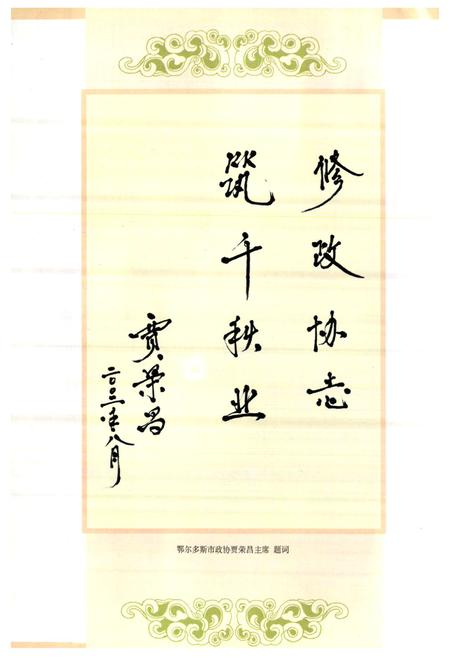 修政协志
筑千秋业
贾荣昌
二〇〇三年八月
鄂尔多斯市政协贾荣昌主席 题词